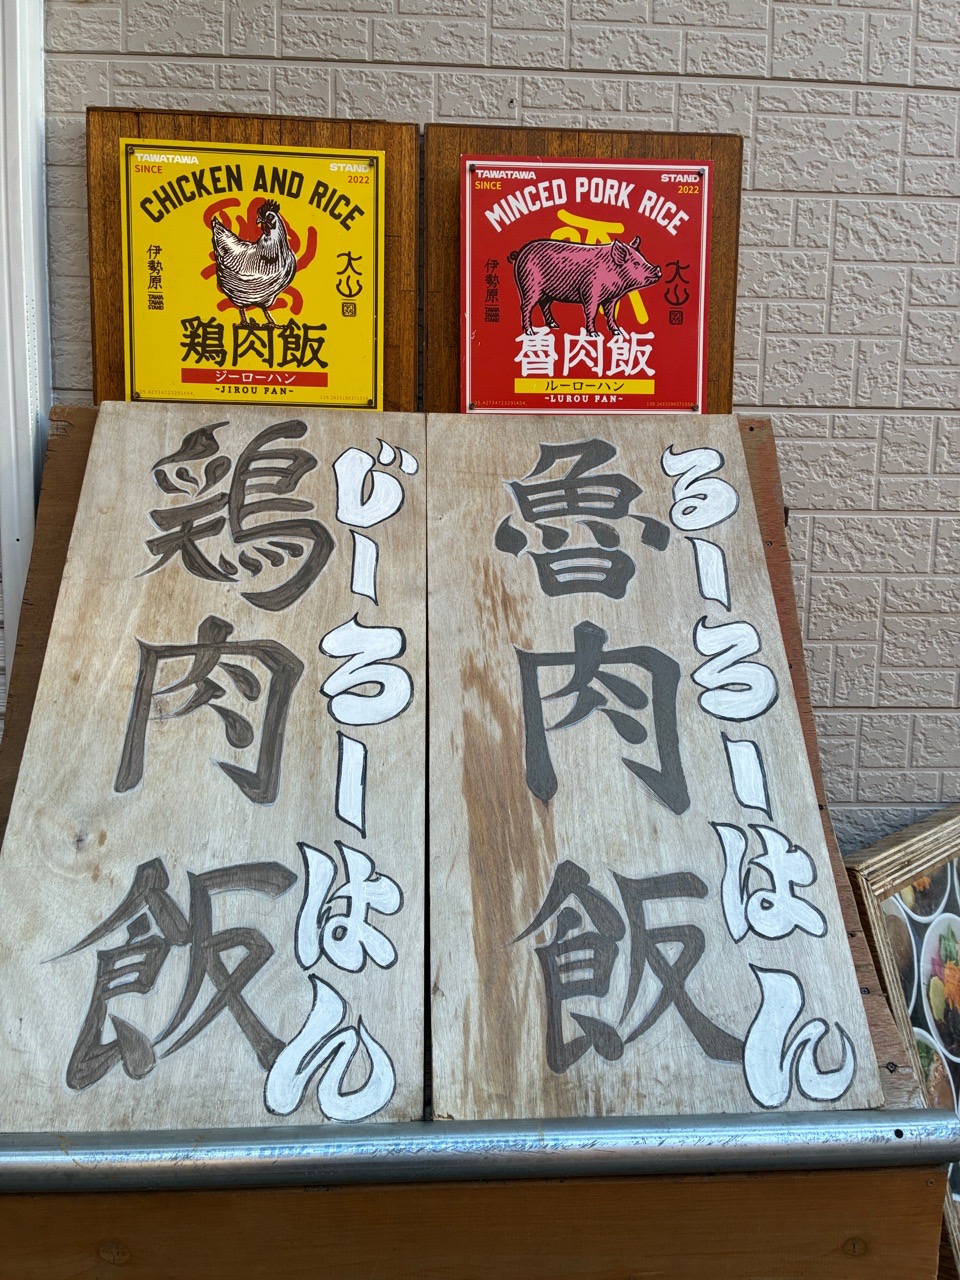 TAWATAWA
STAND
SINCE
2022
CHICKEN AND RICE
伊勢原
TAWA
TAWA
STAND
大山
鶏肉飯
ジーローハン
~JIROU FAN~
TAWATAWA
STAND
SINCE
2022
MINCED PORK RICE
伊勢原
TAWA
TAWA
STAND
大山
魯肉飯
ルーローハン
~LUROU FAN~
鶏肉飯
じーろーはん
魯肉飯
るーろーはん